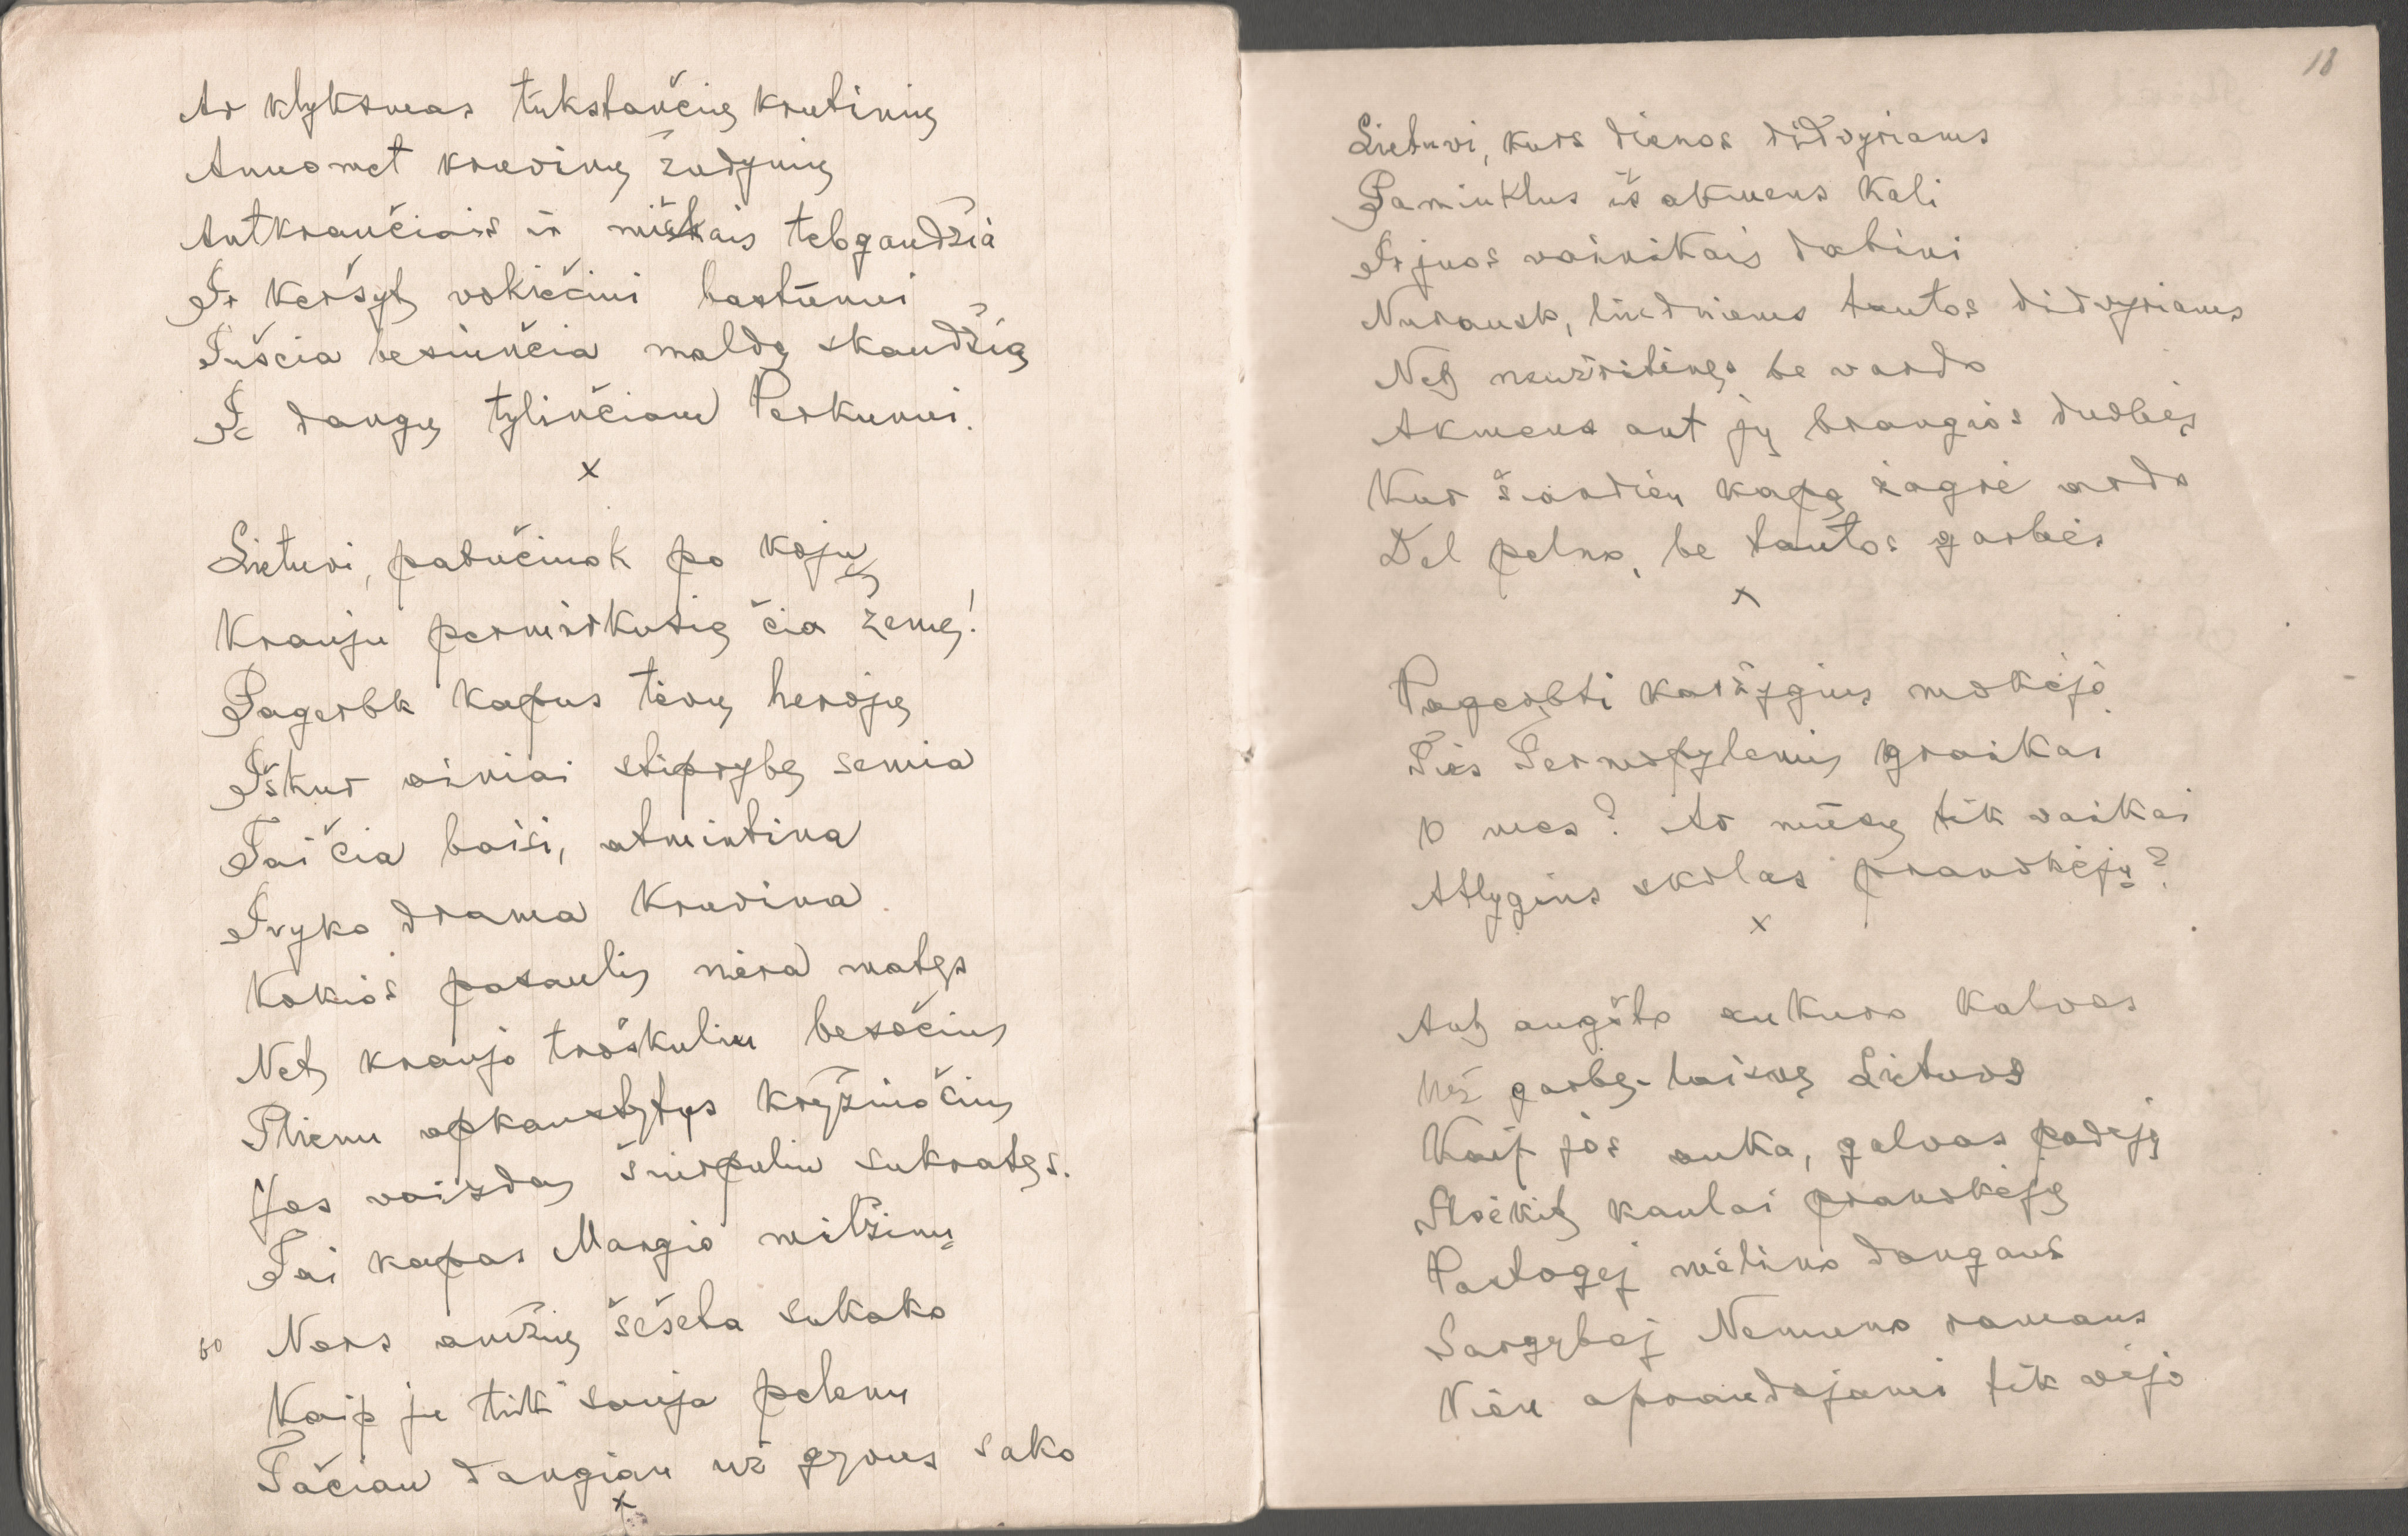 Ar klyksmas tūkstančių krutinių
Anuomet kruvinų žudynių
Antkraučiais ir miškais tebgaudžia
Ir keršyt vokiečiui baltūnui
Tuščia besiunčia maldą skaudžią
Į dangų tylinčiam Perkunui.
x
Lietuvi, pabučiuok po kojų
Krauju permirkusią čia žemę!
Pagerbk kapus tėvų herojų
Iškur ainiai stiprybę semia
Tai čia baisi, atmintina
Įvyko drama kruvina.
Kokios pasaulis nėra matęs
Net kraujo troškuliu besočius
Plienu apkaustytus kryžiuočius
Jos vaizdas šiurpuliu sukratęs.
Tai kapas Margio milžinų
60 Nors amžių šešeta sukako
Kaip jų tik sauja pelenų
Tačiau daugiau už gyvus sako
x
18
Lietuvi, kurs dienos didvyriams
Paminklus iš akmens kali
Ir juos vainikais dabini
Nurausk, liūdniems tautos didvyriams
Net neužritinęs be vardo
Akmens ant jų brangios duobės
Kur šiandien kapą žagrė ardo
Dėl pelno, be tautos garbės
x
Pagerbti karžygius mokėjo
Ties Termopylemis graikai
O mes? Ar mūsų tik vaikai
Atlygins skolas pranokėjų?
x
Ant augšto aukuro kalvos
Už garbę-laisvę Lietuvos
Kaip jos auka, galvas padėję
Ilsėkit kaulai pranokėjų
Pastogėj mėlino dangaus
Sargyboj Nemuno ramaus
Vien apraudojami tik vėjo